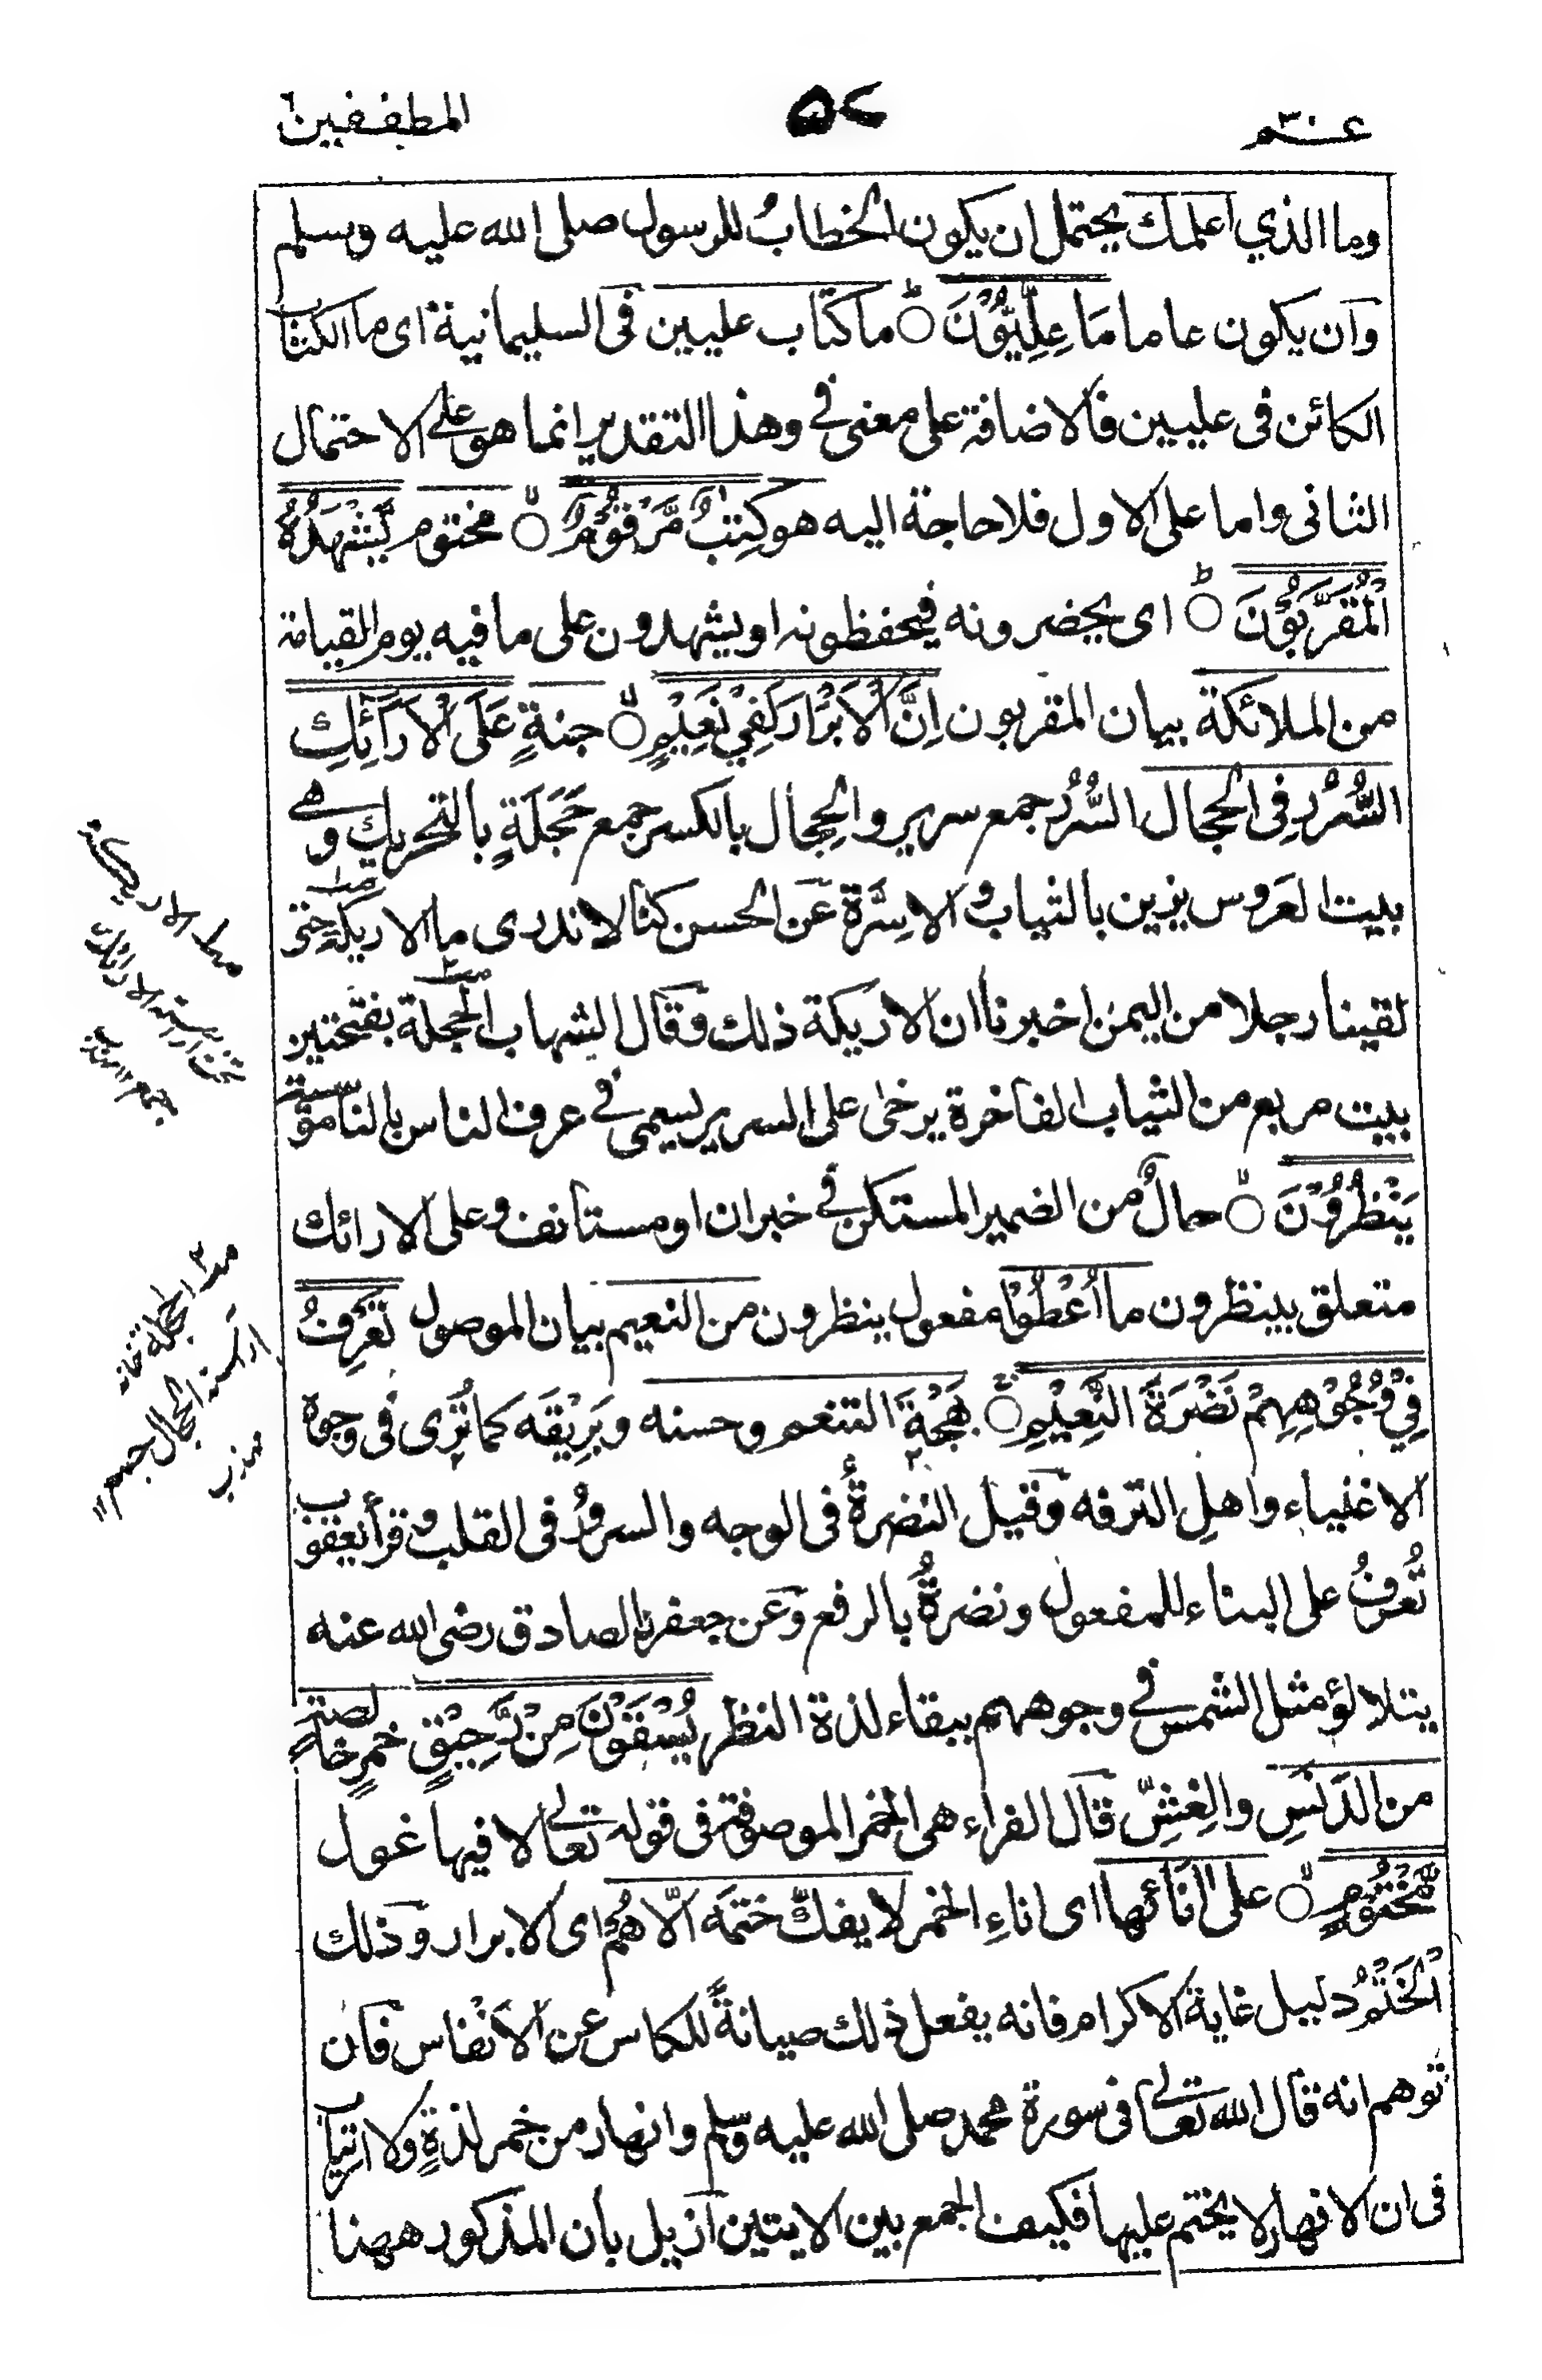 عـم ٣٠
٥٢
المطففين
وما الذي اعلمك يحتمل ان يكون الخطابُ للرسول صلى الله عليه وسلم
وان يكون عاما مَا عِلِّيُّوْنَ ○ ما كتاب عليين فى السليمانية اى ما الكتاب
الكائن فى عليين فالاضافة على معنى فى وهذا التقدير انما هو على الاحتمال
الثانى واما على الاول فلا حاجة اليه هو كِتٰبٌ مَّرْقُوْمٌ ○ مختوم يَّشْهَدُهُ
الْمُقَرَّبُوْنَ ○ اى يحضرونه فيحفظونه او يشهدون على ما فيه يوم القيامة
من الملائكة بيان المقربون اِنَّ الْاَبْرَارَ لَفِيْ نَعِيْمٍ ○ جنةٍ عَلَى الْاَرَآئِكِ
السُّرُر فِى الحِجال السُّرُر جمع سرير والحِجال بالكسر جمع حَجَلَةٍ بالتحريك وهى
بيت العَروس يزين بالثياب والاسِرَّة عَن الحسن كنا لا ندرى ما الاريكة حتى
لقينا رجلا من اليمن اخبرنا ان الاريكة ذلك وقال الشهاب الحجلة بفتحتين
بيت مربع من الثياب الفاخرة يرخى على السرير يسمى فى عرف الناس بالناموسية
يَنْظُرُوْنَ ○ حالٌ من الضمير المستكن فى خبران او مستانف وعلى الارائك
متعلق بينظرون ما اُعْطُوْا مفعول ينظرون من النعيم بيان الموصول تَعْرِفُ
فِيْ وُجُوْهِهِمْ نَضْرَةَ النَّعِيْمِ ○ بَهْجَةَ التنعم وحسنه وبَرِيْقَه كما تُرى فى وجوه
الاغنياء واهلِ الترفه وقيل النضرةُ فى الوجه والسرورُ فى القلب وقرأ يعقوب
تُعرَفُ على البناء للمفعول ونضرةٌ بالرفع وعن جعفرن الصادق رضى الله عنه
يتلالؤ مثل الشمس فى وجوههم ببقاء لذة النظر يُسْقَوْنَ مِنْ رَّحِيْقٍ خمرٍ خالصة
من الدَنَسِ والغِشِّ قال الفراء هى الخمر الموصوفة فى قوله تعالى لا فيها غول
مَّخْتُوْمٍ ○ على اِنَائها اى اناءِ الخمر لا يفكّ ختمَه اِلّا هُمْ اى الابرار وذلك
الْخَتْمُ دليل غاية الاكرام فانه يفعل ذلك صيانةً للكاس عن الاَنْفاس فان
توهم انه قال الله تعالى فى سورة محمد صلى الله عليه وسلم وانهار من خمر لذةٍ ولا ارتياب
فى ان الانهار لا يختم عليها فكيف الجمع بين الايتين ازيل بان المذكور ههنا
الاريكة